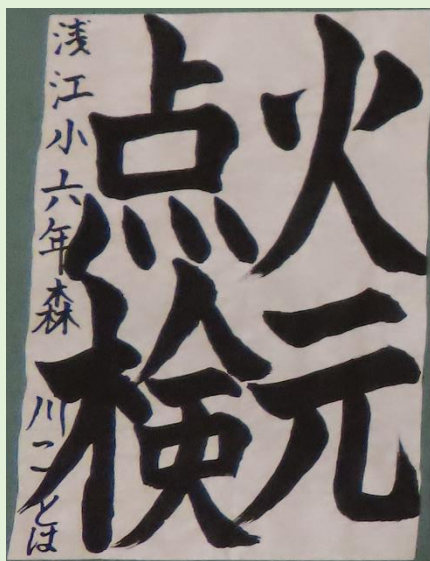 火元
点検
浅江小六年森川ことは